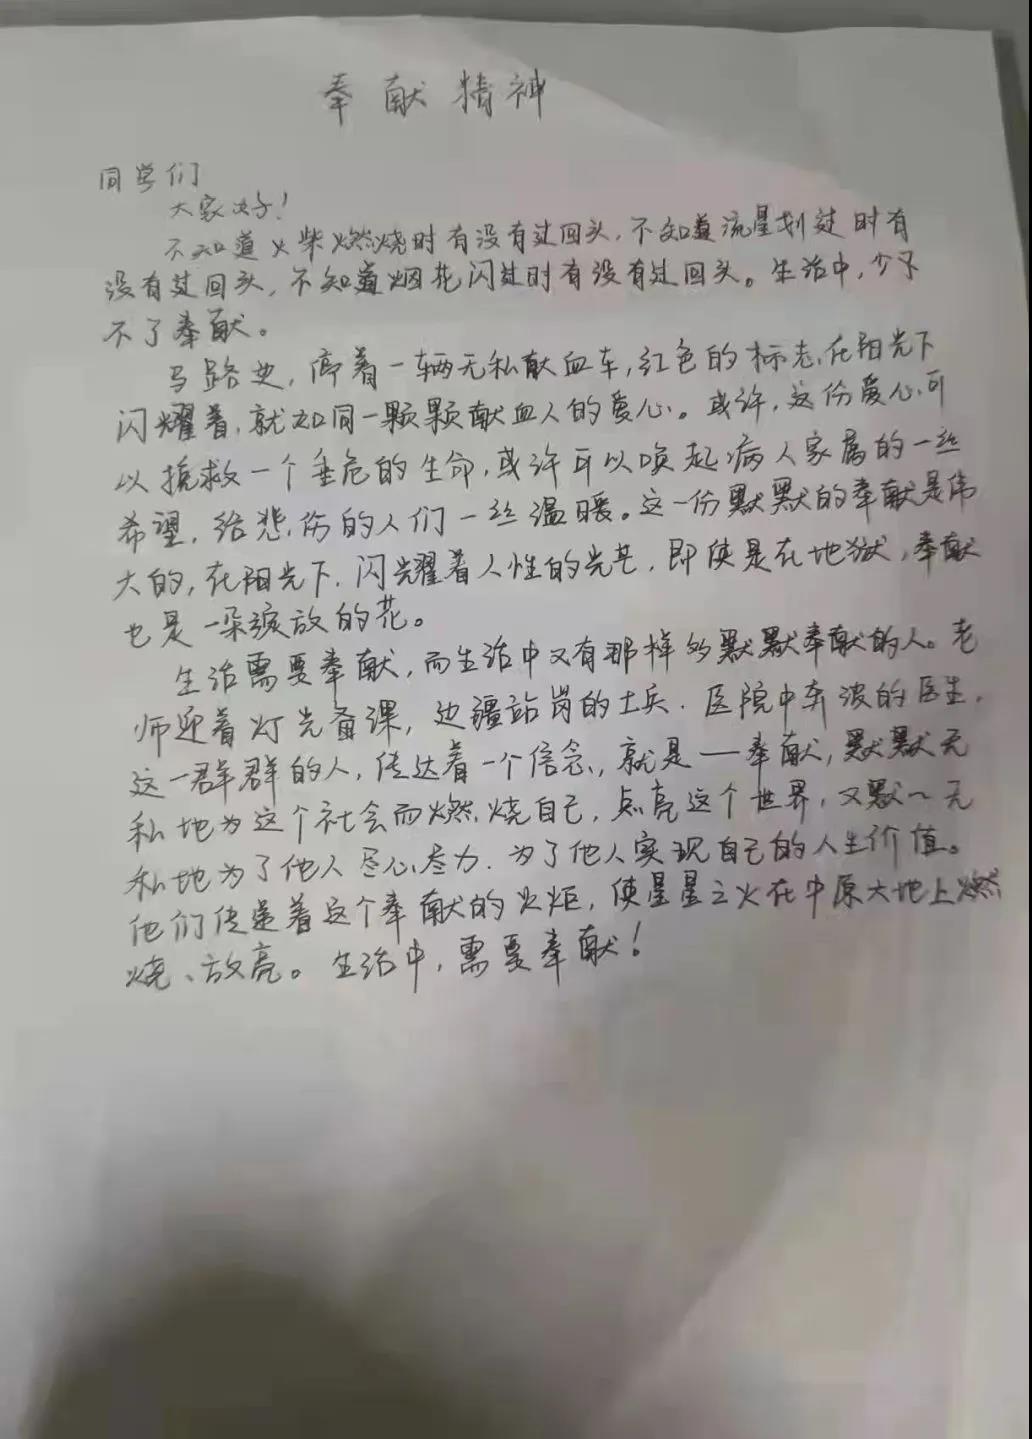 奉献精神
同学们
大家好!
不知道火柴燃烧时有没有过回头,不知道流星划过时有
没有过回头,不知道烟花闪过时有没有过回头。生活中,少不
不了奉献。
马路边,停着一辆无私献血车,红色的标志,在阳光下
闪耀着,就如同一颗颗献血人的爱心。或许,这份爱心,可
以挽救一个垂危的生命,或许可以唤起病人家属的一丝
希望,给悲伤的人们一丝温暖。这一份默默的奉献是伟
大的,在阳光下,闪耀着人性的光芒,即使是在地狱,奉献
也是一朵绽放的花。
生活需要奉献,而生活中又有那样多默默奉献的人。老
师迎着灯光备课,边疆站岗的士兵.医院中奔波的医生,
这一群群的人,传达着一个信念,就是——奉献,默默无
私地为这个社会而燃烧自己,点亮这个世界,又默~无
私地为了他人尽心尽力.为了他人实现自己的人生价值。
他们传递着这个奉献的火炬,使星星之火在中原大地上燃
烧、放亮。生活中,需要奉献!